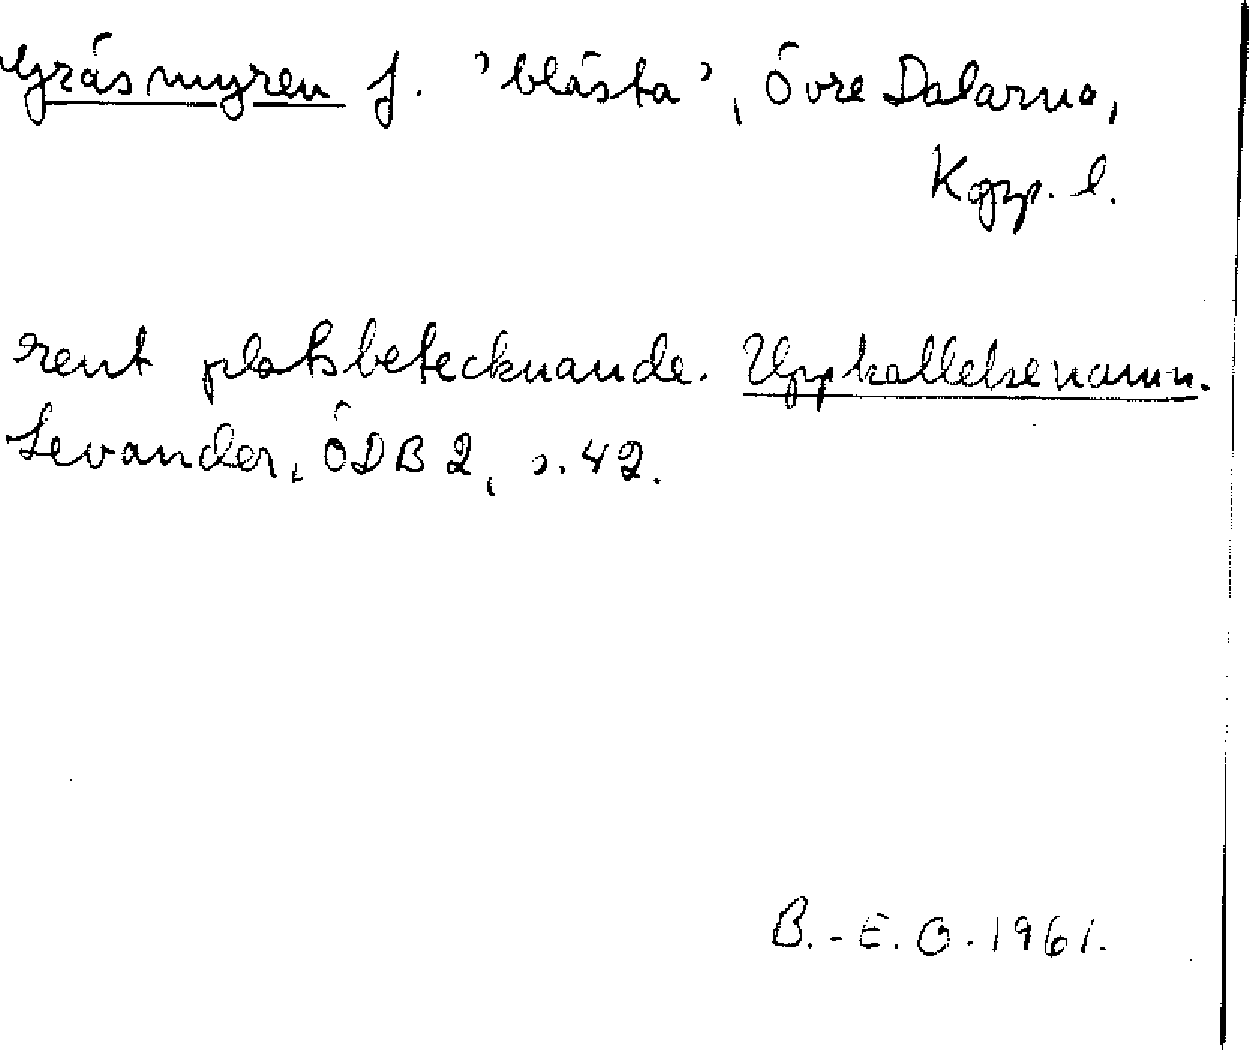 Gräsmyren f. 'blästa', Övre Dalarna,
Kopp. l.
rent platsbetecknande. Uppkallelsenamn.
Levander, ÖDB 2, s. 42.
B.-E. O. 1961.